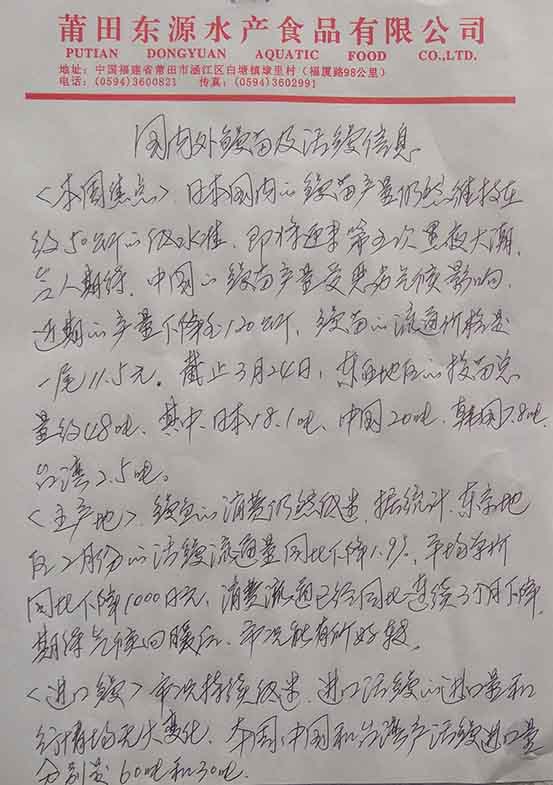 莆田东源水产食品有限公司
PUTIAN DONGYUAN AQUATIC FOOD CO.,LTD.
地址：中国福建省莆田市涵江区白塘镇埭里村（福厦路98公里）
电话：(0594)3600821 传真：(0594)3602991
国内外鳗苗及活鳗信息
〈本周焦点〉、日本国内的鳗苗产量仍然维持在
约50公斤的低水准，即将迎来第五次黑夜大潮，
令人期待。中国的鳗苗产量受恶劣气候影响，
近期的产量下降至120公斤，鳗苗的流通价格是
一尾11.5元。截止3月24日，东亚地区的投苗总
量约48吨、其中、日本18.1吨、中国20吨、韩国7.8吨、
台湾2.5吨。
〈主产地〉、鳗鱼的消费仍然低迷，据统计、东京地
区2月份的活鳗流通量同比下降1.9%，平均单价
同比下降1000日元，消费流通已经同比连续3个月下降，
期待气候回暖后、市况能有所好转。
〈进口鳗〉市况持续低迷，进口活鳗的进口量和
行情均无大变化，本周、中国和台湾产活鳗进口量
分别是60吨和30吨。